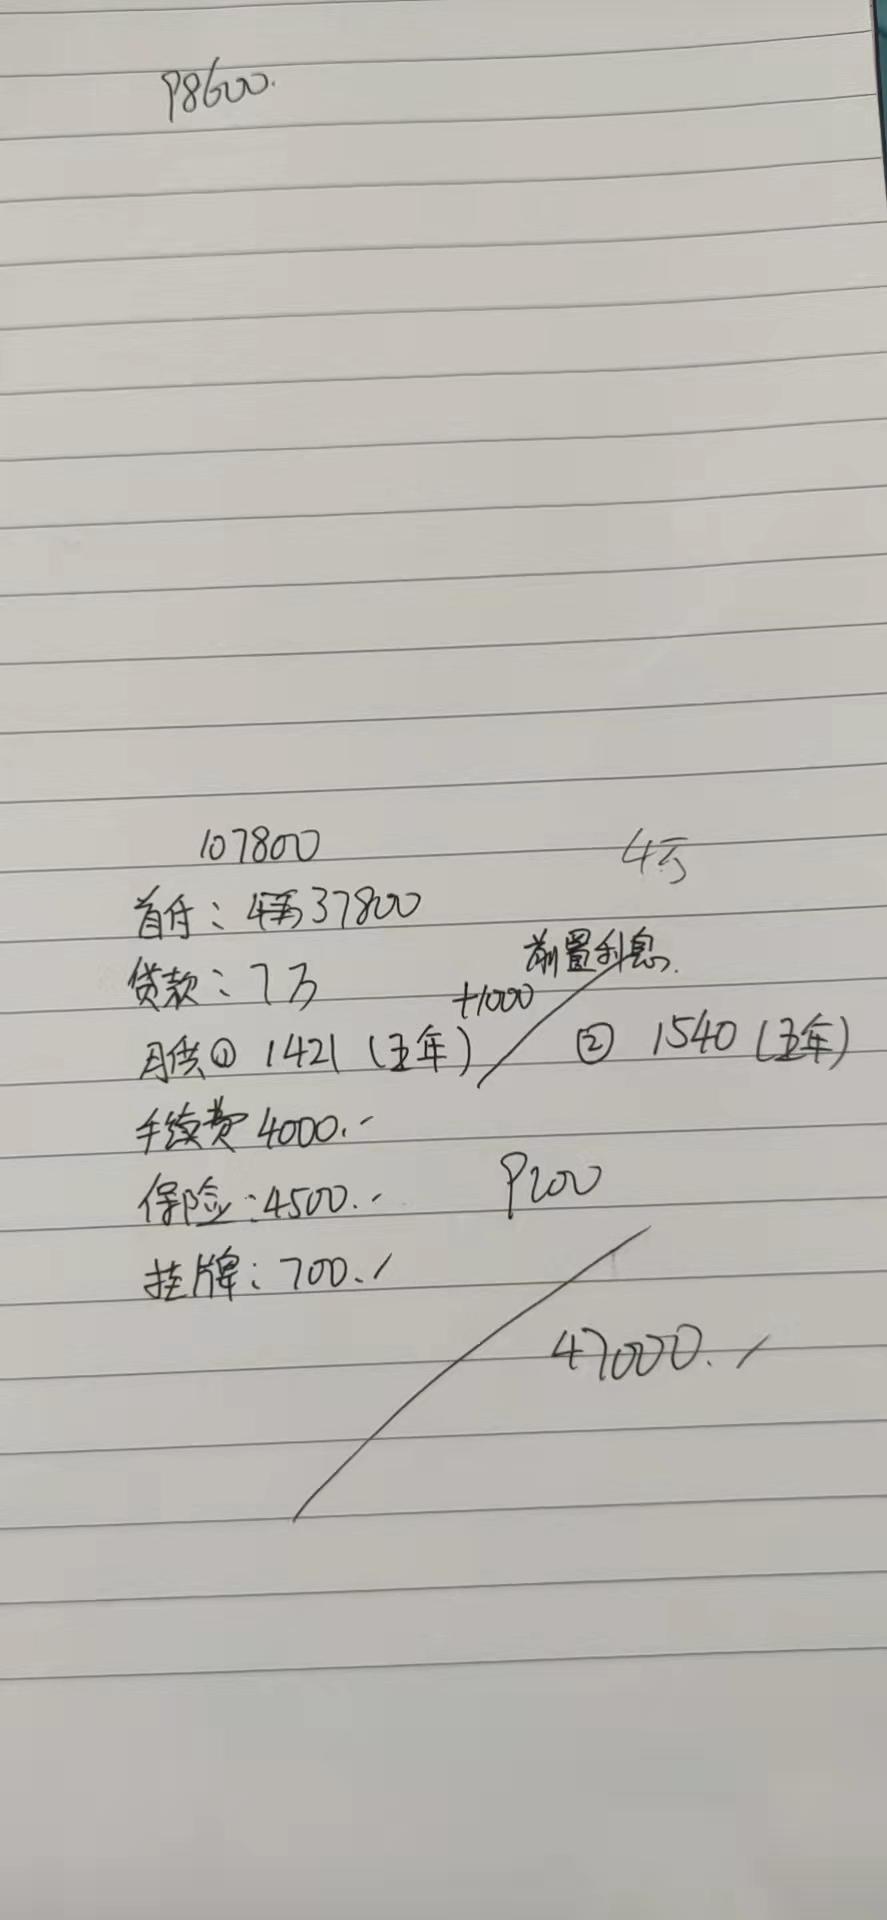 98600.
107800
4万
首付：37800
前置利息.
贷款：7万
+1000
月供① 1421 (五年)
② 1540 (五年)
手续费 4000.-
9200
保险：4500.-
挂牌：700.-
47000.-